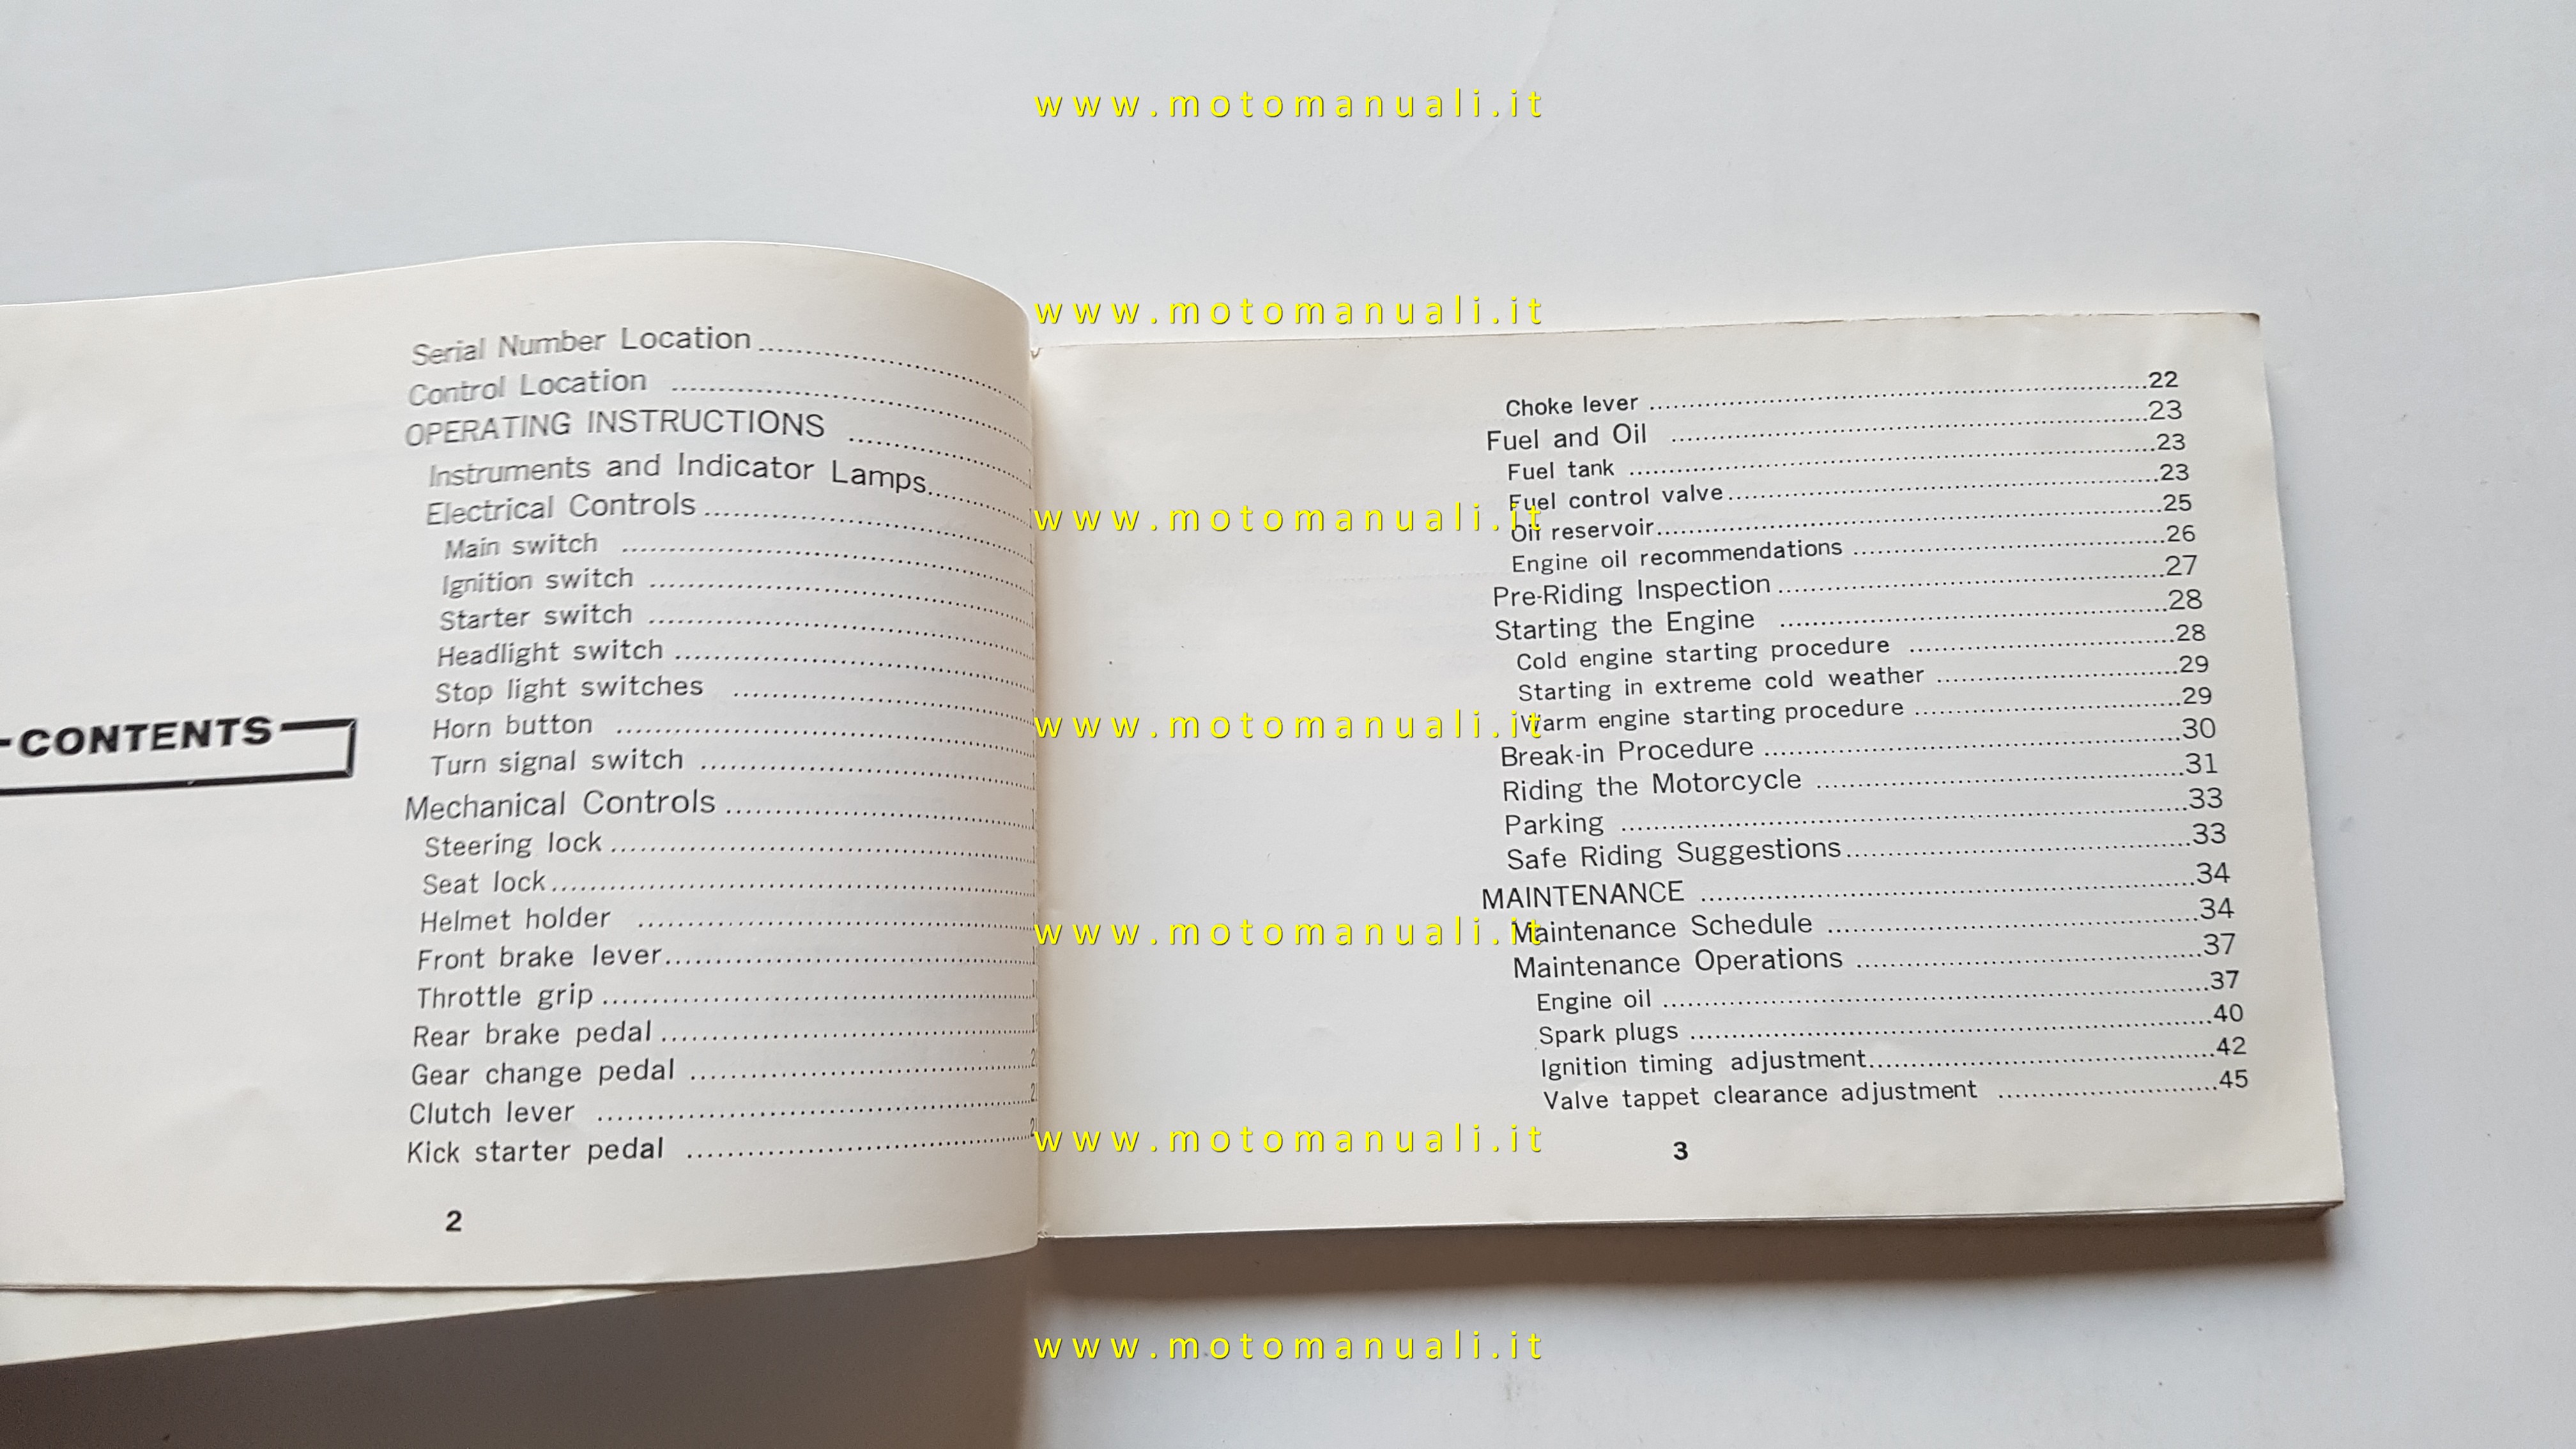 www.motomanuali.it
www.motomanuali.it
CONTENTS
Serial Number Location
Control Location
OPERATING INSTRUCTIONS
Instruments and Indicator Lamps
Electrical Controls
Main switch
Ignition switch
Starter switch
Headlight switch
Stop light switches
Horn button
Turn signal switch
Mechanical Controls
Steering lock
Seat lock
Helmet holder
Front brake lever
Throttle grip
Rear brake pedal
Gear change pedal
Clutch lever
Kick starter pedal
2
Choke lever 22
Fuel and Oil 23
Fuel tank 23
Fuel control valve 23
Oil reservoir 25
Engine oil recommendations 26
Pre-Riding Inspection 27
Starting the Engine 28
Cold engine starting procedure 28
Starting in extreme cold weather 29
Warm engine starting procedure 29
Break-in Procedure 30
Riding the Motorcycle 31
Parking 33
Safe Riding Suggestions 33
MAINTENANCE 34
Maintenance Schedule 34
Maintenance Operations 37
Engine oil 37
Spark plugs 40
Ignition timing adjustment 42
Valve tappet clearance adjustment 45
3
www.motomanuali.it
www.motomanuali.it
www.motomanuali.it
www.motomanuali.it
www.motomanuali.it